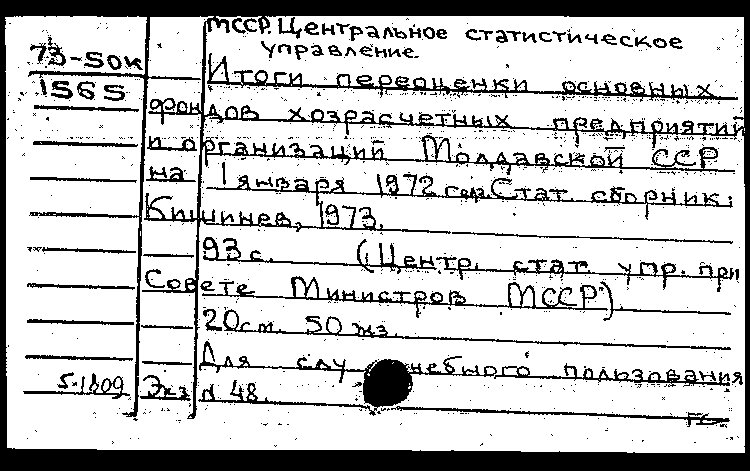 МССР. Центральное статистическое
управление.
73-50к
1565
Итоги переоценки основных
фондов хозрасчетных предприятий
и организаций Молдавской ССР
на 1 января 1972 год. Стат. сборник.
Кишинев, 1973.
93 с. (Центр. стат. упр. при
Совете Министров МССР).
20 см. 50 экз.
Для служебного пользования
5-1809 Экз. N 48.